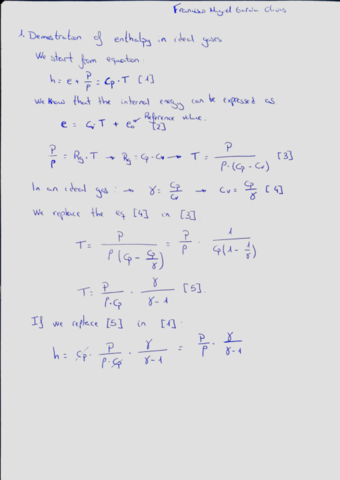 Francisco Miguel García
1. Demostration of enthalpy in ideal gases
We start from equation:
h = e + P/ρ = Cp · T [1]
We know that the internal energy can be expressed as
e = Cv · T + e₀ Reference value. [2]
P/ρ = Rg · T → Rg = Cp - Cv → T = P/(ρ · (Cp - Cv)) [3]
In an ideal gas: → γ = Cp/Cv → Cv = Cp/γ [4]
We replace the eq [4] in [3]
T = P/(ρ(Cp - Cp/γ)) = P/ρ · 1/(Cp(1 - 1/γ))
T = P/(ρ · Cp) · γ/(γ - 1) [5].
If we replace [5] in [1]:
h = Cp · P/(ρ · Cp) · γ/(γ - 1) = P/ρ · γ/(γ - 1)